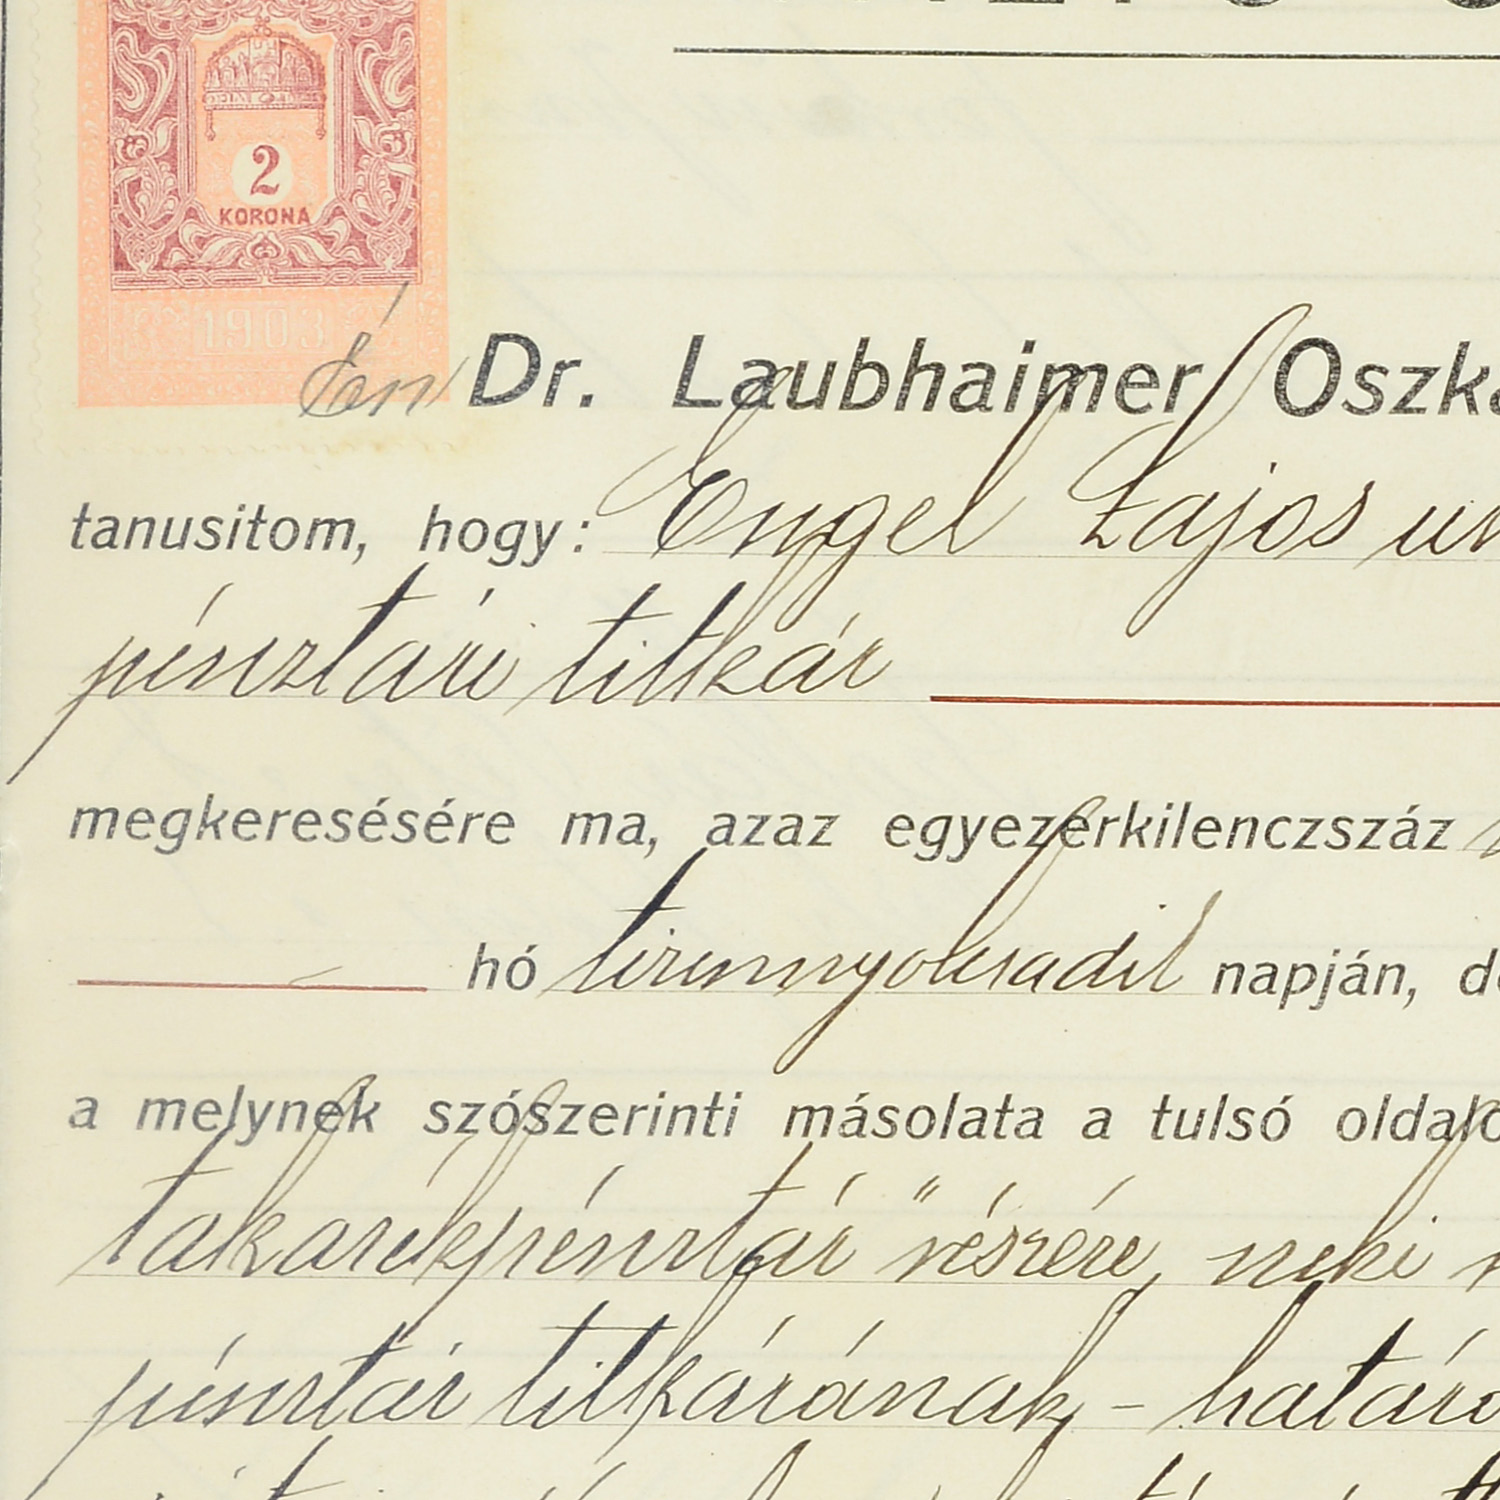 2
KORONA
1903
Én Dr. Laubhaimer Oszká
tanusitom, hogy: Engel Lajos
pénztári titkár
megkeresésére ma, azaz egyezerkilenczszáz
hó tizennyolczadik napján, de
a melynek szószerinti másolata a tulsó oldalo
takarékpénztár részére, neki
pénztár titkárának - határo